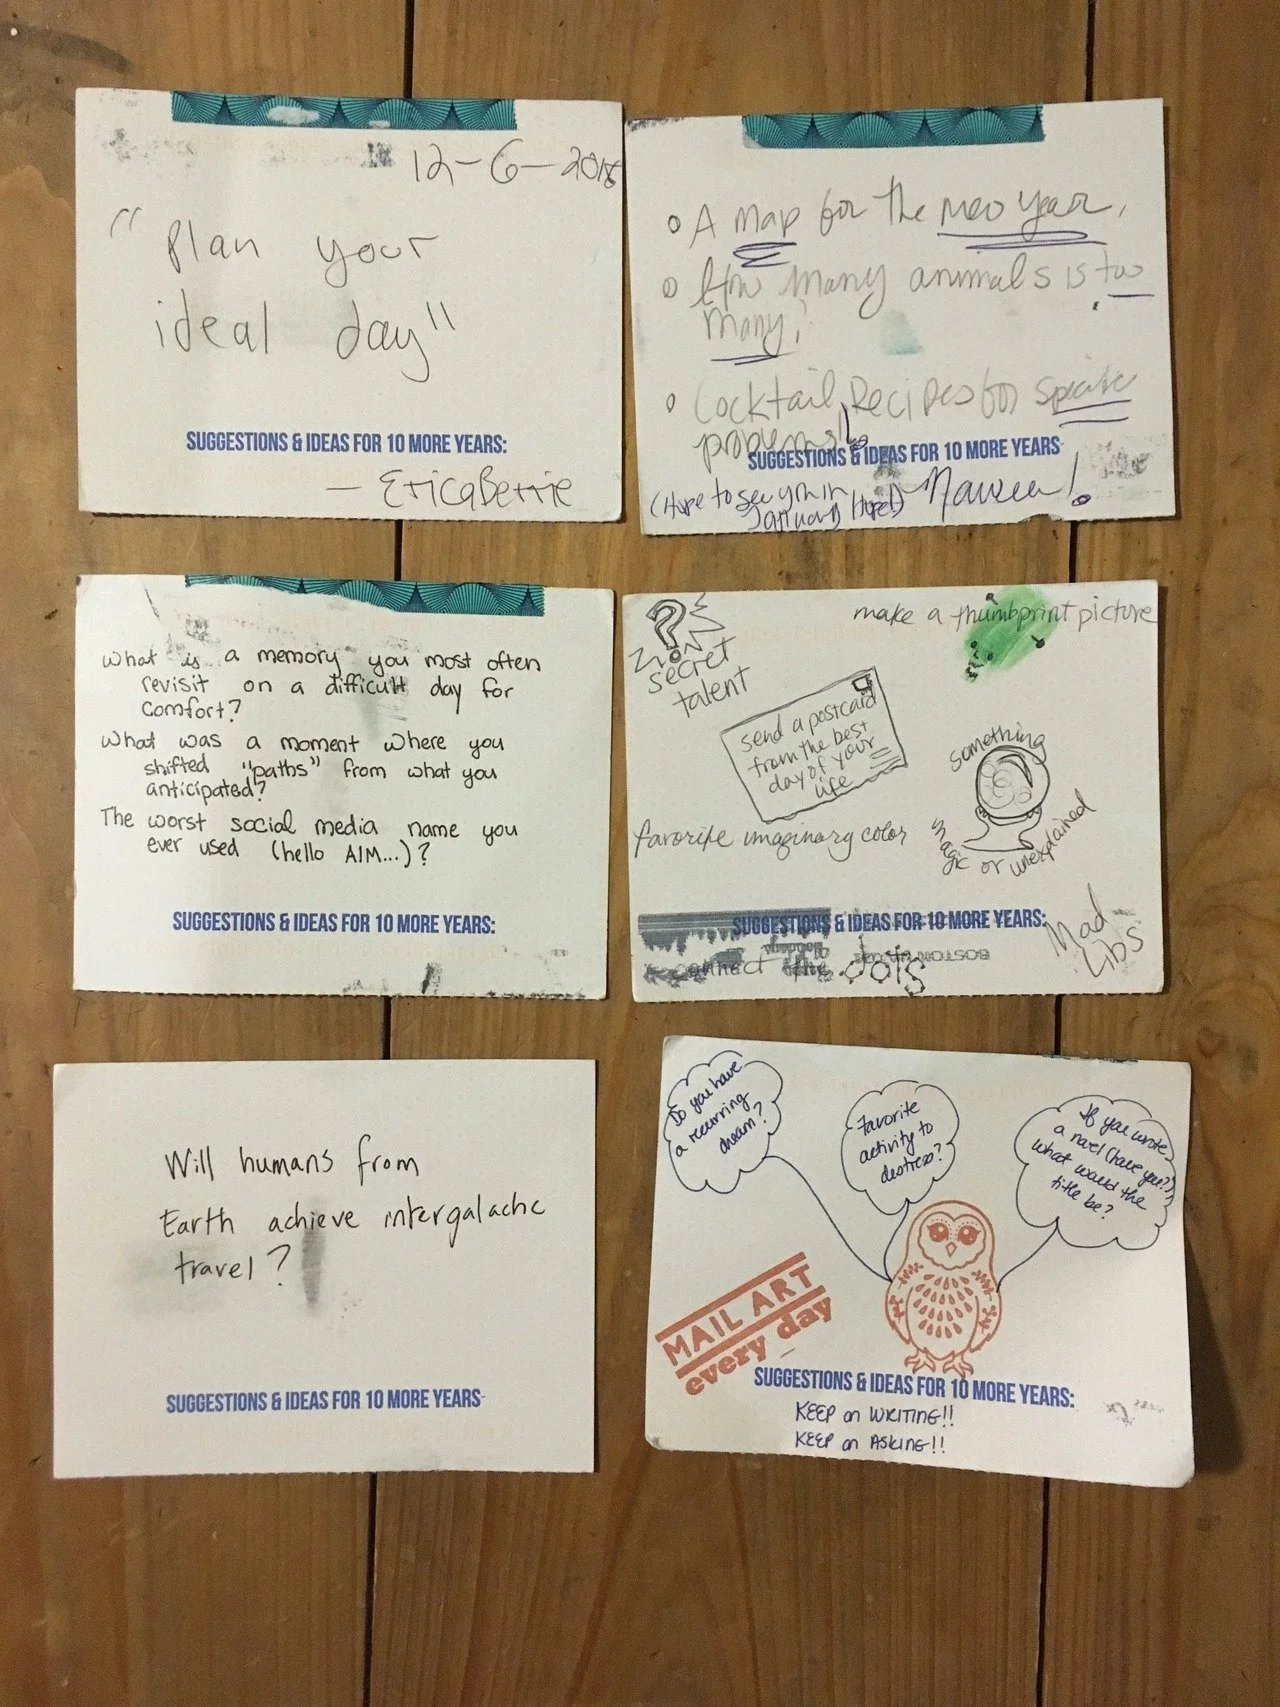 12-6-2018
"Plan your
ideal day"
SUGGESTIONS & IDEAS FOR 10 MORE YEARS:
— EricaBerrie
A map for the new year,
How many animals is too
many?
Cocktail Recipes for specific
problems!!
SUGGESTIONS & IDEAS FOR 10 MORE YEARS
(Hope to see you in
January
What is a memory you most often
revisit on a difficult day for
comfort?
What was a moment where you
shifted "paths" from what you
anticipated?
The worst social media name you
ever used (hello AIM...)?
SUGGESTIONS & IDEAS FOR 10 MORE YEARS:
make a thumbprint picture
?
secret
talent
send a postcard
from the best
day of your
life
something
magic or unexplained
favorite imaginary color
SUGGESTIONS & IDEAS FOR 10 MORE YEARS:
connect the dots
BOSTON
Mad
Libs
Will humans from
Earth achieve intergalactic
travel?
SUGGESTIONS & IDEAS FOR 10 MORE YEARS
Do you have
a recurring
dream?
Favorite
activity to
destress?
If you wrote
a novel (have you?),
what would the
title be?
MAIL ART
every day
SUGGESTIONS & IDEAS FOR 10 MORE YEARS:
KEEP on WRITING!!
KEEP on ASKING!!